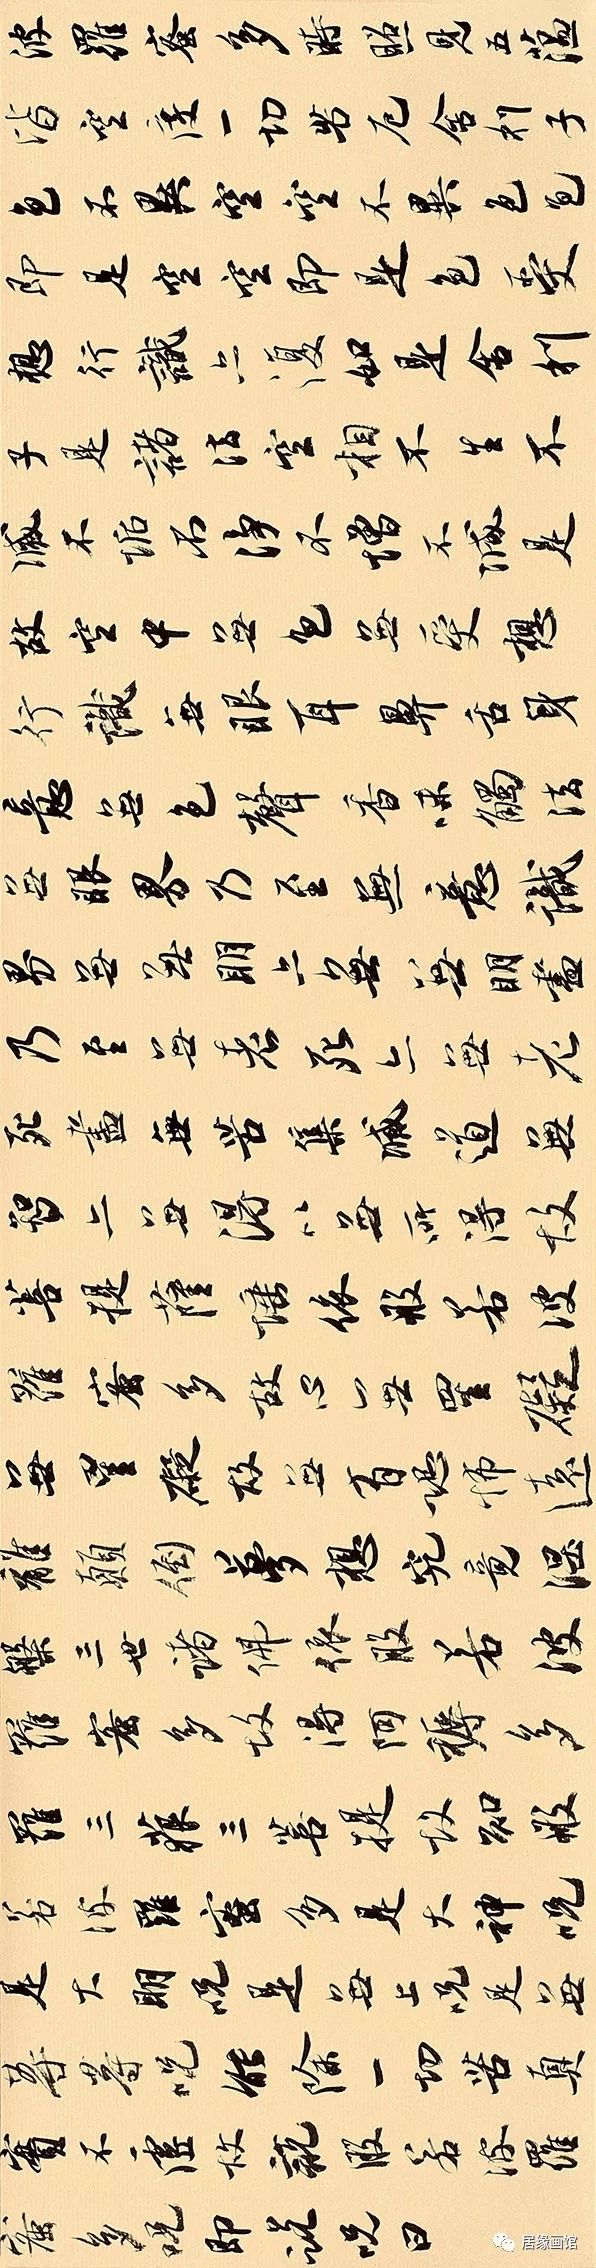 波羅蜜多時照見五蘊
皆空度一切苦厄舍利子
色不異空空不異色色
即是空空即是色受
想行識亦復如是舍利
子是諸法空相不生不
滅不垢不淨不增不減是
故空中無色無受想
行識無眼耳鼻舌身
意無色聲香味觸法
無眼界乃至無意識
界無無明亦無無明盡
乃至無老死亦無老
死盡無苦集滅道無
智亦無得以無所得故
菩提薩埵依般若波
羅蜜多故心無罣礙
無罣礙故無有恐怖遠
離顛倒夢想究竟涅
槃三世諸佛依般若波
羅蜜多故得阿耨多
羅三藐三菩提故知般
若波羅蜜多是大神咒
是大明咒是無上咒是無
等等咒能除一切苦真
實不虛故說般若波羅
蜜多咒即說咒曰
居缘画馆